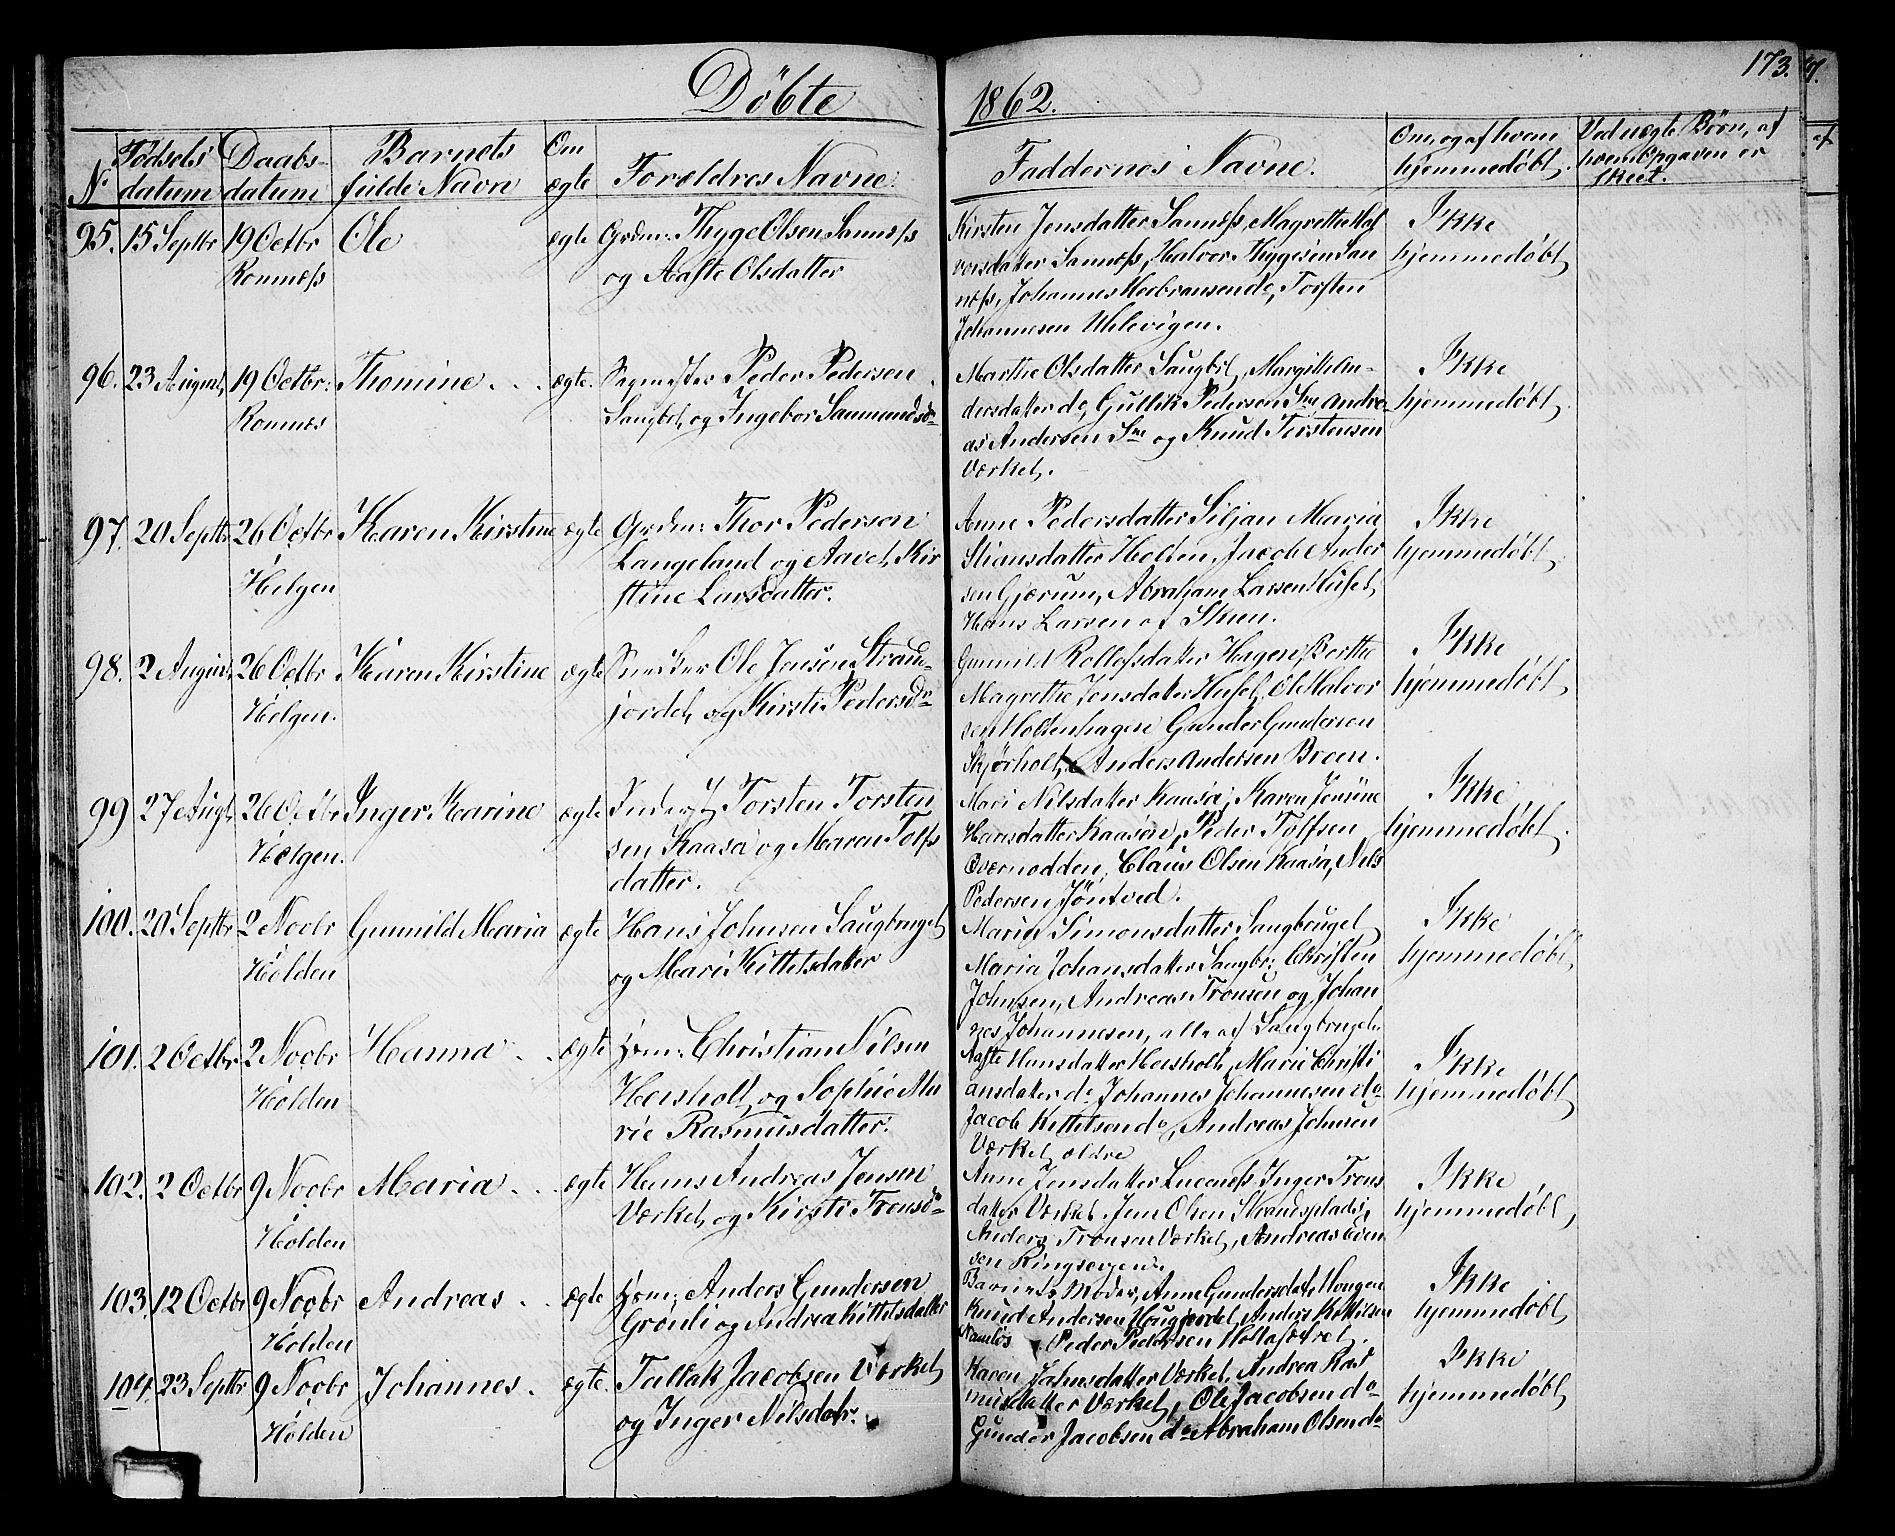 173.
Döbte 1862.
No Fødsels datum Daabs datum Barnets fulde Navn Om ægte Forældres Navne. Faddernes Navne. Om, og af hvem hjemmedøbt. Ved uægte Børn, af hvem Opgaven er skeet.
95. 15 Septbr 19 Octbr Ole ægte Grdm: Thyge Olsen Sannæss
Romnæss og Aaste Olsdatter
Kirsten Jensdatter Sannæss, Magrethe Hal
vorsdatter Sannæss, Halvor Thygesen San
næss, Johannes Herbransen do, Torsten
Johannesen Uhlevigen.
Ikke
hjemmedøbt
96. 23 August 19 Octbr: Thomine ægte. Sagmester Peder Pedersen
Romnæs Saugbrt og Ingebor Saamundsdr
Marthe Olsdatter Saugbrt, Margith An-
dersdatter do Gullik Pedersen Sne Andre-
as Andersen Sne og Knud Torstensen
Værket.
Ikke
hjemmedøbt
97. 20 Septbr 26 Octbr Karen Kirstine ægte Grdm: Thor Pedersen
Helgen Langeland og Aavet Kir
stine Larsdatter.
Anne Pedersdatter Siljan Maria
Stiansdatter Holten, Jacob Ander
sen Gjærum, Abraham Larsen Huset,
Hans Larsen af Skien.
Ikke
hjemmedøbt
98. 2 August 26 Octbr Karen Kirstine ægte Ole Jensen Stran-
Helgen. jordet og Kirsti Pedersdr
Gunnild Rollefsdatter Hagen, Berthe
Magrethe Jensdatter Huset, Ole Halvor
sen Holtenhagen Gunder Gundersen
Skjørholt, Anders Andersen Breen.
Ikke
hjemmedøbt
99 27 Augt 26 Octbr Inger Karine ægte Torsten Torsten
Helgen. sen Kaasa og Maren Tolfs
datter.
Mari Nilsdatter Kaasa, Karen Jensine
Hansdatter Kaasa, Peder Tolfsen
Overnodden, Claus Olsen Kaasa, Nils
Pedersen Jöntved.
Ikke
hjemmedøbt.
100. 20 Septbr 2 Novbr Gunnild Maria ægte Hans Johnsen Saugbruget
Holden og Mari Kittelsdatter
Maria Simonsdatter Saugbruget
Maria Johansdatter Saugbr: Christen
Johnsen, Andreas Tronsen og Johan
nes Johannesen, alle af Saugbruget.
Ikke
hjemmedøbt
101. 2 Octbr 2 Novbr Hanna ægte Christian Nilsen
Holden Hersholt og Sophie Ma
rie Rasmusdatter.
Aaste Hansdatter Hersholt, Marie Christi
ansdatter do Johannes Johannesen do
Jacob Kittelsen do, Andreas Johnsen
Værket ældre
Ikke
hjemmedøbt
102. 2 Octbr 9 Novbr Maria ægte Hans Andreas Jensen
Holden Værket og Kirsti Tronsdr
Anne Jensdatter Lucenæss, Inger Trons
datter Værket. Jens Olsen Strandsplads,
Anders Tronsen Værket, Andreas Even
sen Ringsevjen.
Ikke
hjemmedøbt
103. 12 Octbr 9 Novbr Andreas ægte Anders Gundersen
Holden Grönli og Andrea Kittelsdatter
Barnets Moder, Anne Gundersdatr Hougen
Knud Andersen Hougjordet, Anders Kittelsen
Namlös Peder Pedersen Hollasætret.
Ikke
hjemmedøbt
104. 23 Septbr 9 Novbr Johannes. ægte. Tallak Jacobsen Værket
Holden og Inger Nilsdatr.
Karen Jahnsdatter Værket, Andrea Ras
musdatter Værket, Ole Jacobsen do
Gunder Jacobsen do Abraham Olsen do
Ikke
hjemmedøbt